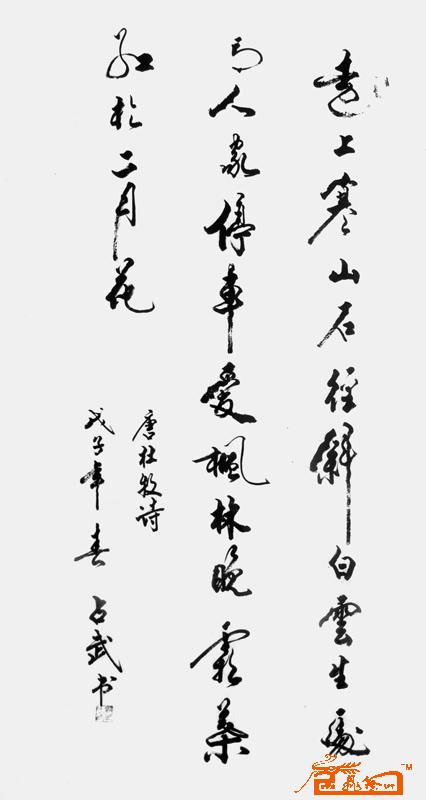 遠上寒山石徑斜白雲生處
有人家停車愛楓林晚霜葉
紅於二月花
唐杜牧詩
戊子年春 占武书